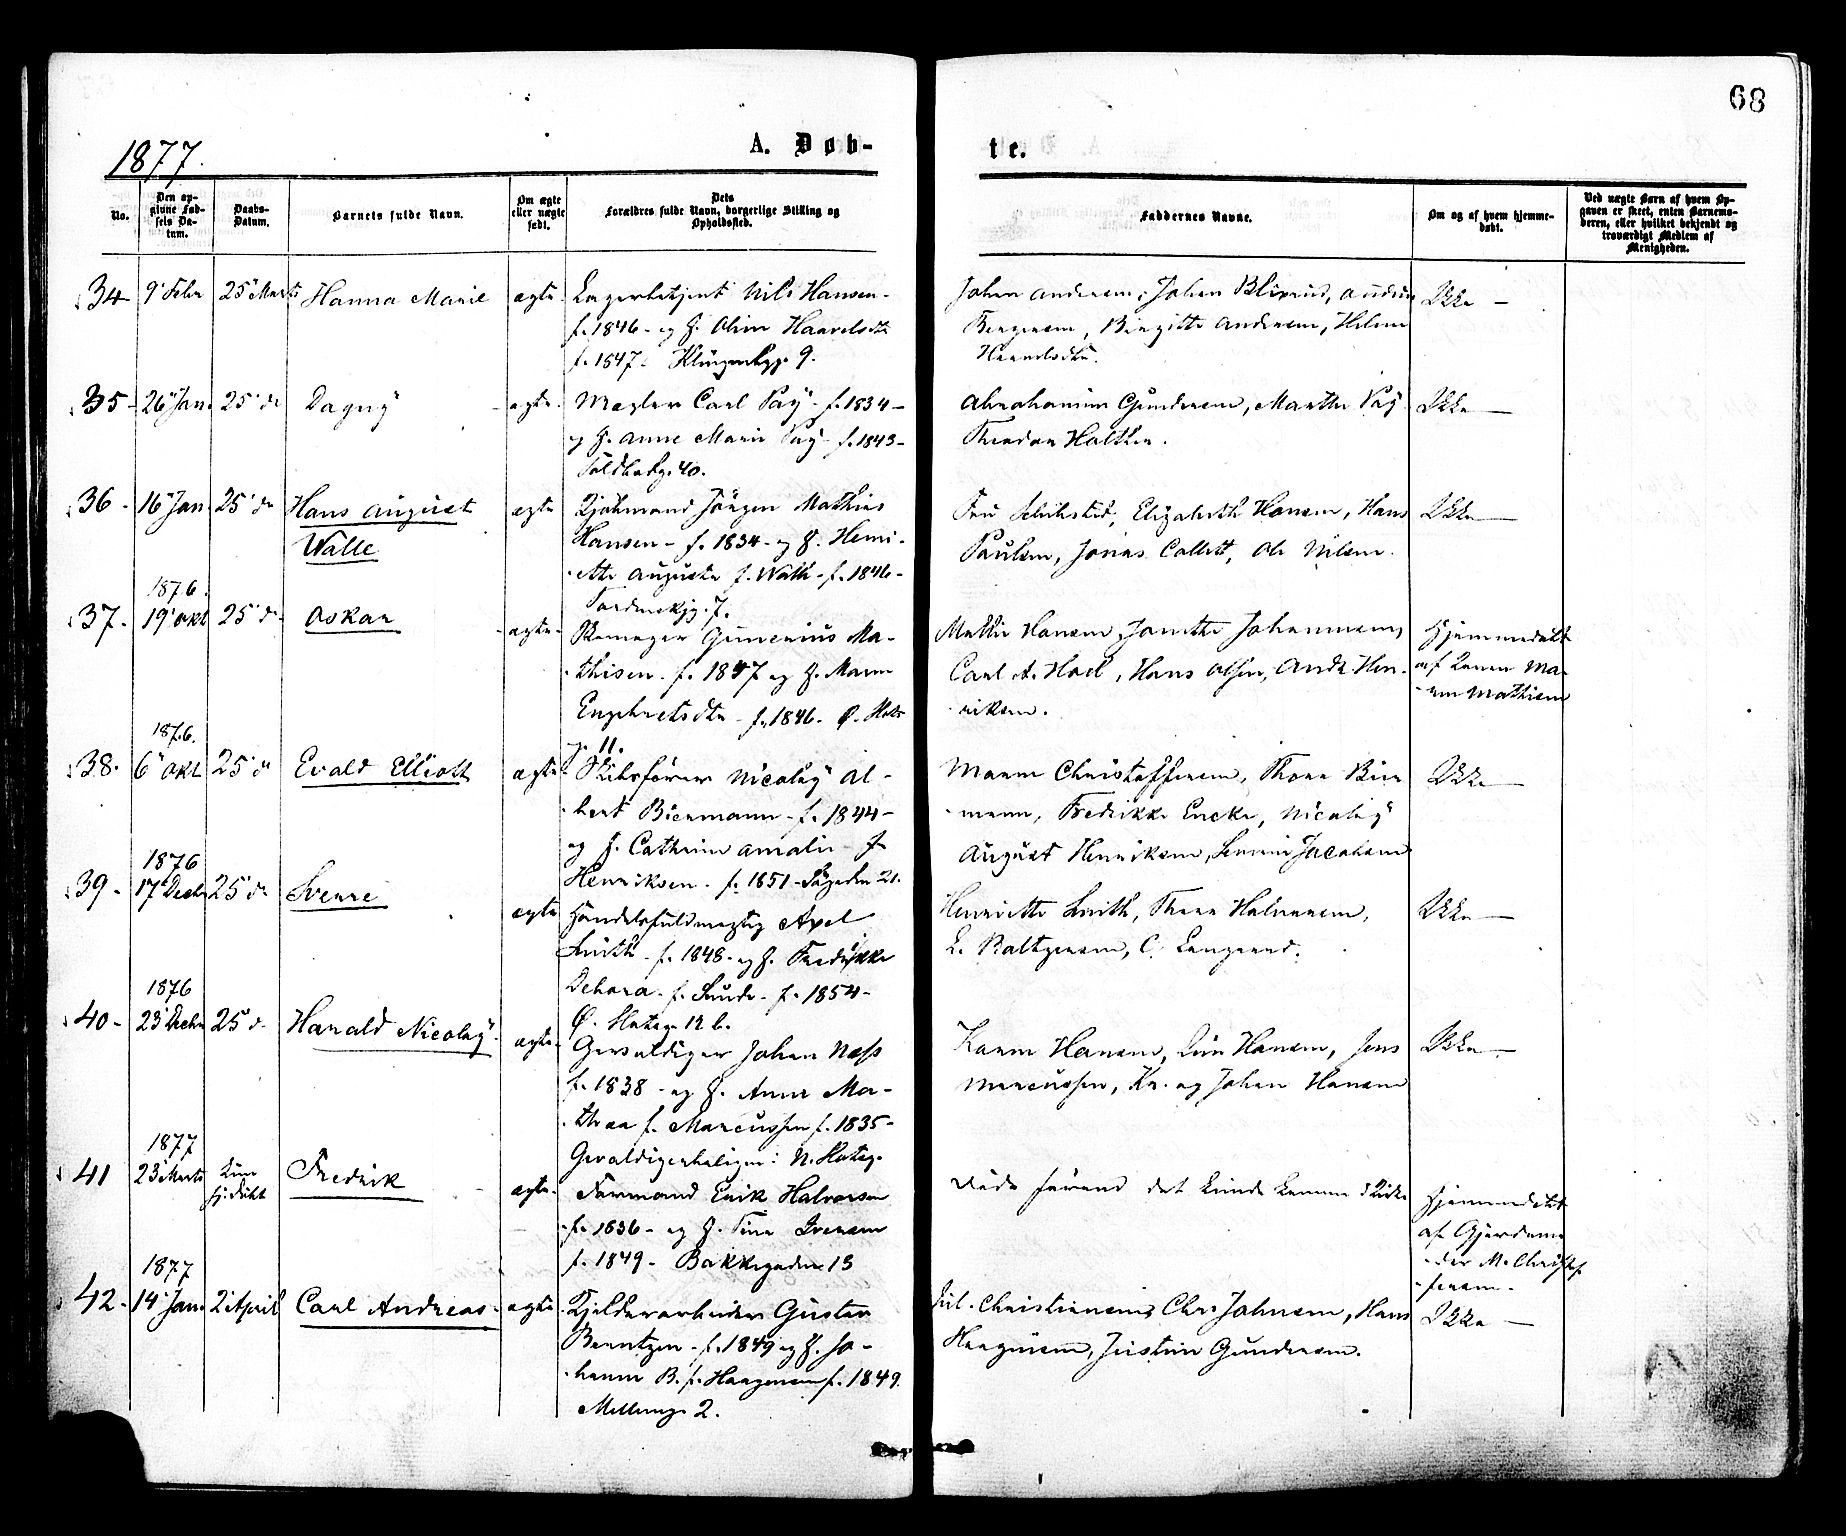 68
1877.
A. Døb-
te.
No.
Den op-
givne Fød-
sels Da-
tum.
Daabs-
Datum.
Barnets fulde Navn.
Om ægte
eller uægte
født.
Dets
Forældres fulde Navn, borgerlige Stilling og
Opholdssted.
Faddernes Navne.
Om og af hvem hjemme-
døbt.
Ved uægte Barn af hvem Op-
gaven er skeet, enten Barnemo-
deren, eller hvilket bekjendt og
troværdigt Medlem af
Menigheden.
34 9' Febr 25' Marts Hanna Marie ægte. Lagerbetjent Nils Hansen-
f. 1846 - og H. Oline Haavelsdtr
f. 1847. 9.
Johan Andersen, Johan
Birgitte Andersen, Helene
Ikke -
35- 26' Jan. 25' do Dagny ægte. Mægler Carl Pay - f. 1834 -
og H. Anne Marie Pay - f. 1843 -
Toldbodg. 40.
Gundersen, Marthe Pay
Theodor Holthe.
Ikke -
36- 16' Jan 25' do Hans August
Walle
ægte Sjømand Jørgen Mathias
Hansen - f. 1834 - og H. Henri-
-ette Augusta f. Walle - f. 1846 -
7.
Fru Elizabeth Hansen, Hans
Paulsen, Jonas Collett, Ole Nilsen.
Ikke -
1876.
37- 19' Okt 25' do Oskar ægte - Skomager Gunerius Ma-
-thisen - f. 1847 og H. Maren
Engebretsdtr - f. 1846. Ø. Hav-
g. 11.
Mathie Hansen, Johannesen,
Carl A. Hoel, Hans Olsen, Andr. Hen-
-riksen.
Hjemmedøbt
af Konen Ma-
-ren Mathisen
1876.
38- 6' Okt 25' do Evald Elliott ægte Skibsfører Nicolay Al-
-bert Biermann - f. 1844 -
og H. Cathrine Amalie f.
Henriksen - f. 1851 - 21.
Maren Christoffersen, Thora Bier
-mann, Fredrikke Encke, Nicolay
August Henriksen, Jacobsen
Ikke -
1876
39- 17' Decbr 25' do Sverre ægte Handelsfuldmægtig Axel
Smith - f. 1848 - og H. Fredrikke
Debora - f. Smith - f. 1854 -
Ø. Haveg. 12 b.
Henriette Smith, Thora Halvorsen,
L. Baltzersen, C. Langaard.
Ikke -
1876
40- 23' Decbr 25' do Harald Nicolay ægte - Gevaldiger Johan Næss
f. 1838 - og H. Anne Ma-
-thea f. Marcussen f. 1835 -
Gevaldigerboligen: N. Haveg.
Karen Hansen, Hansen, Jens
Marcussen, Kr. og Johan Hansen
Ikke -
1877
41 23' Marts Kun
hj. døbt
Fredrik ægte. Formand Erik Halvorsen
f. 1836 - og H. Tina Iversen
f. 1849 - Bakkegaden 13
Døde førend det kunde komme i Kirke
Hjemmedøbt
af Gjordemo-
-der M. Christof-
-fersen.
1877
42- 14' Jan. 2' April Carl Andreas ægte. Kjelderarbeider Gustav
Berntzen - f. 1849 og H. Jo-
-hanne B. f. Haagensen f. 1849.
Mellemg. 2.
Jul. Christiansen, Chr. Johnsen, Hans
Haagensen, Justine Gundersen.
Ikke -